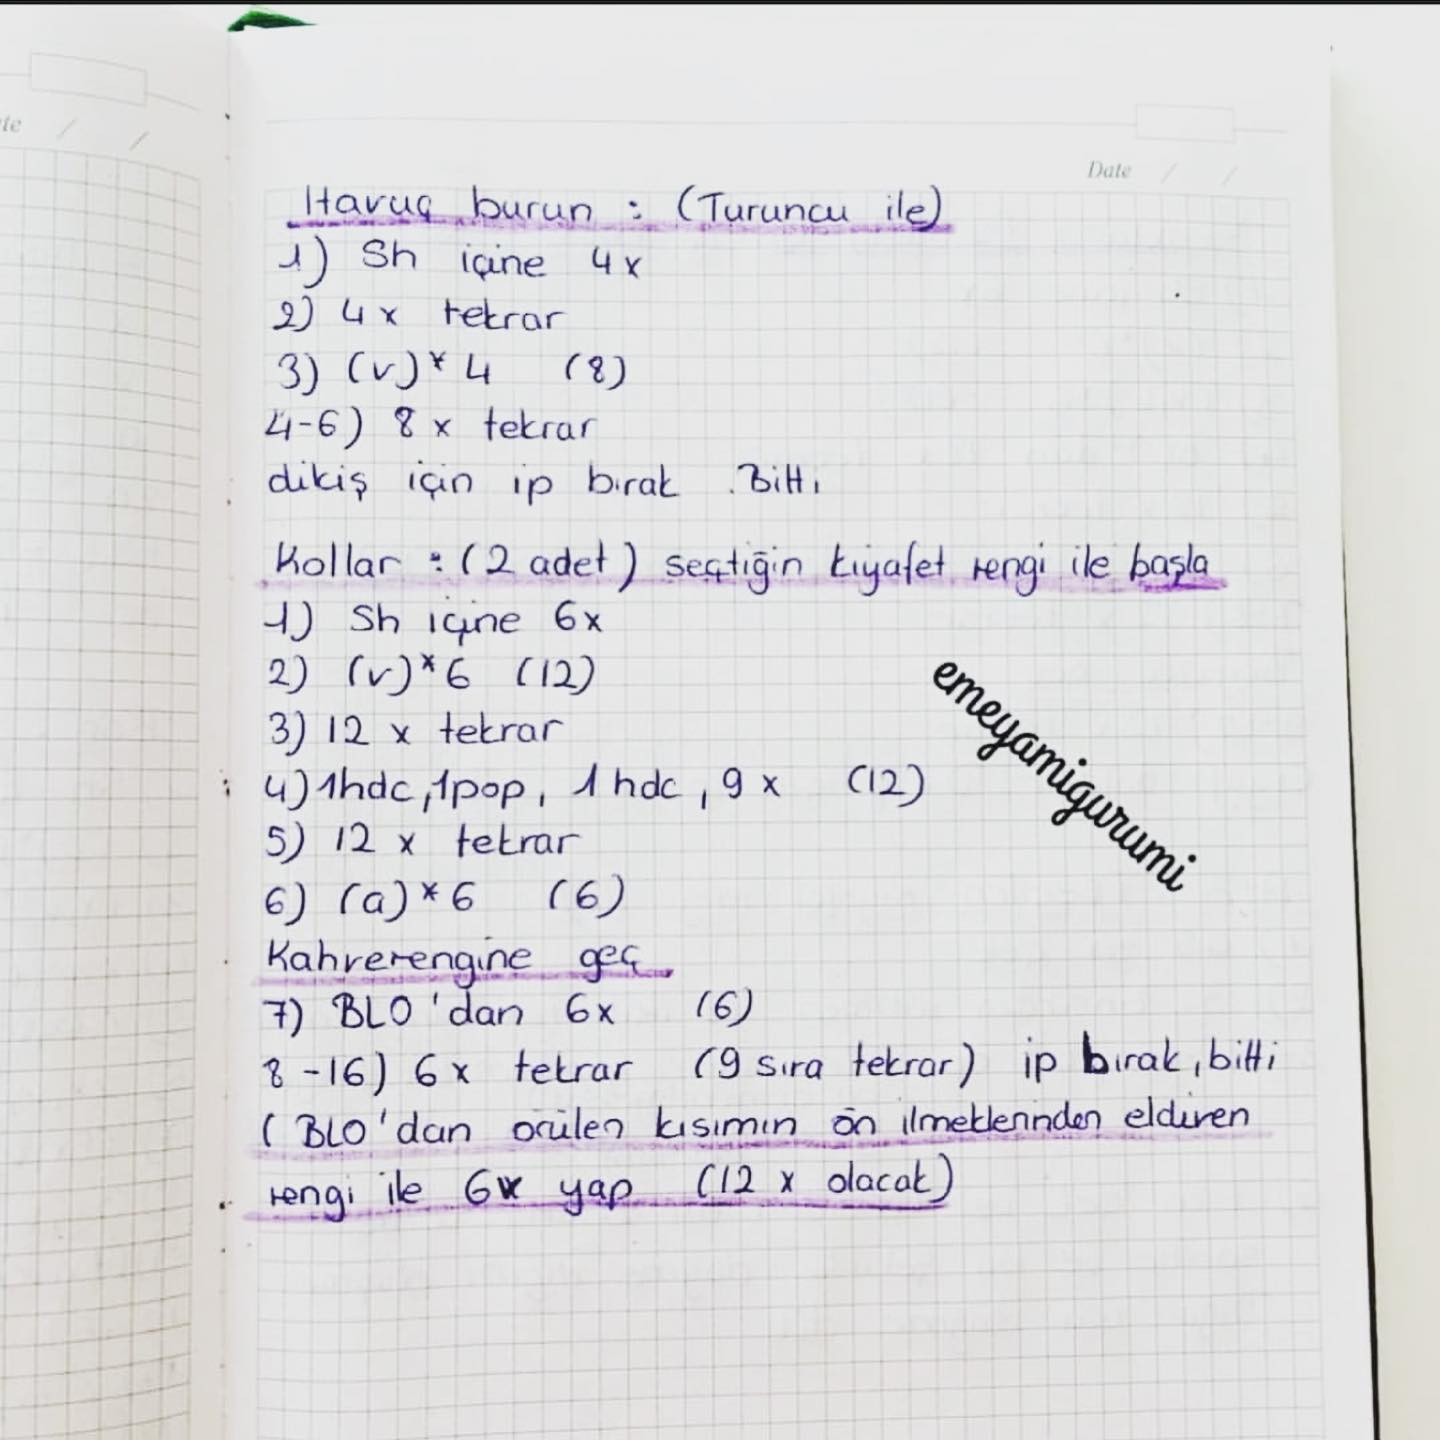 te / /
Date / /
Havuç burun : (Turuncu ile)
1) Sh içine 4x
2) 4x tekrar
3) (v)*4 (8)
4-6) 8x tekrar
dikiş için ip bırak . Bitti
Kollar : (2 adet) seçtiğin kıyafet rengi ile başla
1) Sh içine 6x
2) (v)*6 (12)
3) 12 x tekrar
4) 1hdc, 1pop, 1 hdc, 9 x (12)
5) 12 x tekrar
6) (a)*6 (6)
Kahverengine geç
7) BLO'dan 6x (6)
8-16) 6x tekrar (9 sıra tekrar) ip bırak, bitti
( BLO'dan örülen kısımın ön ilmeklerinden eldiven
rengi ile 6x yap (12 x olacak)
emeyamigurumi